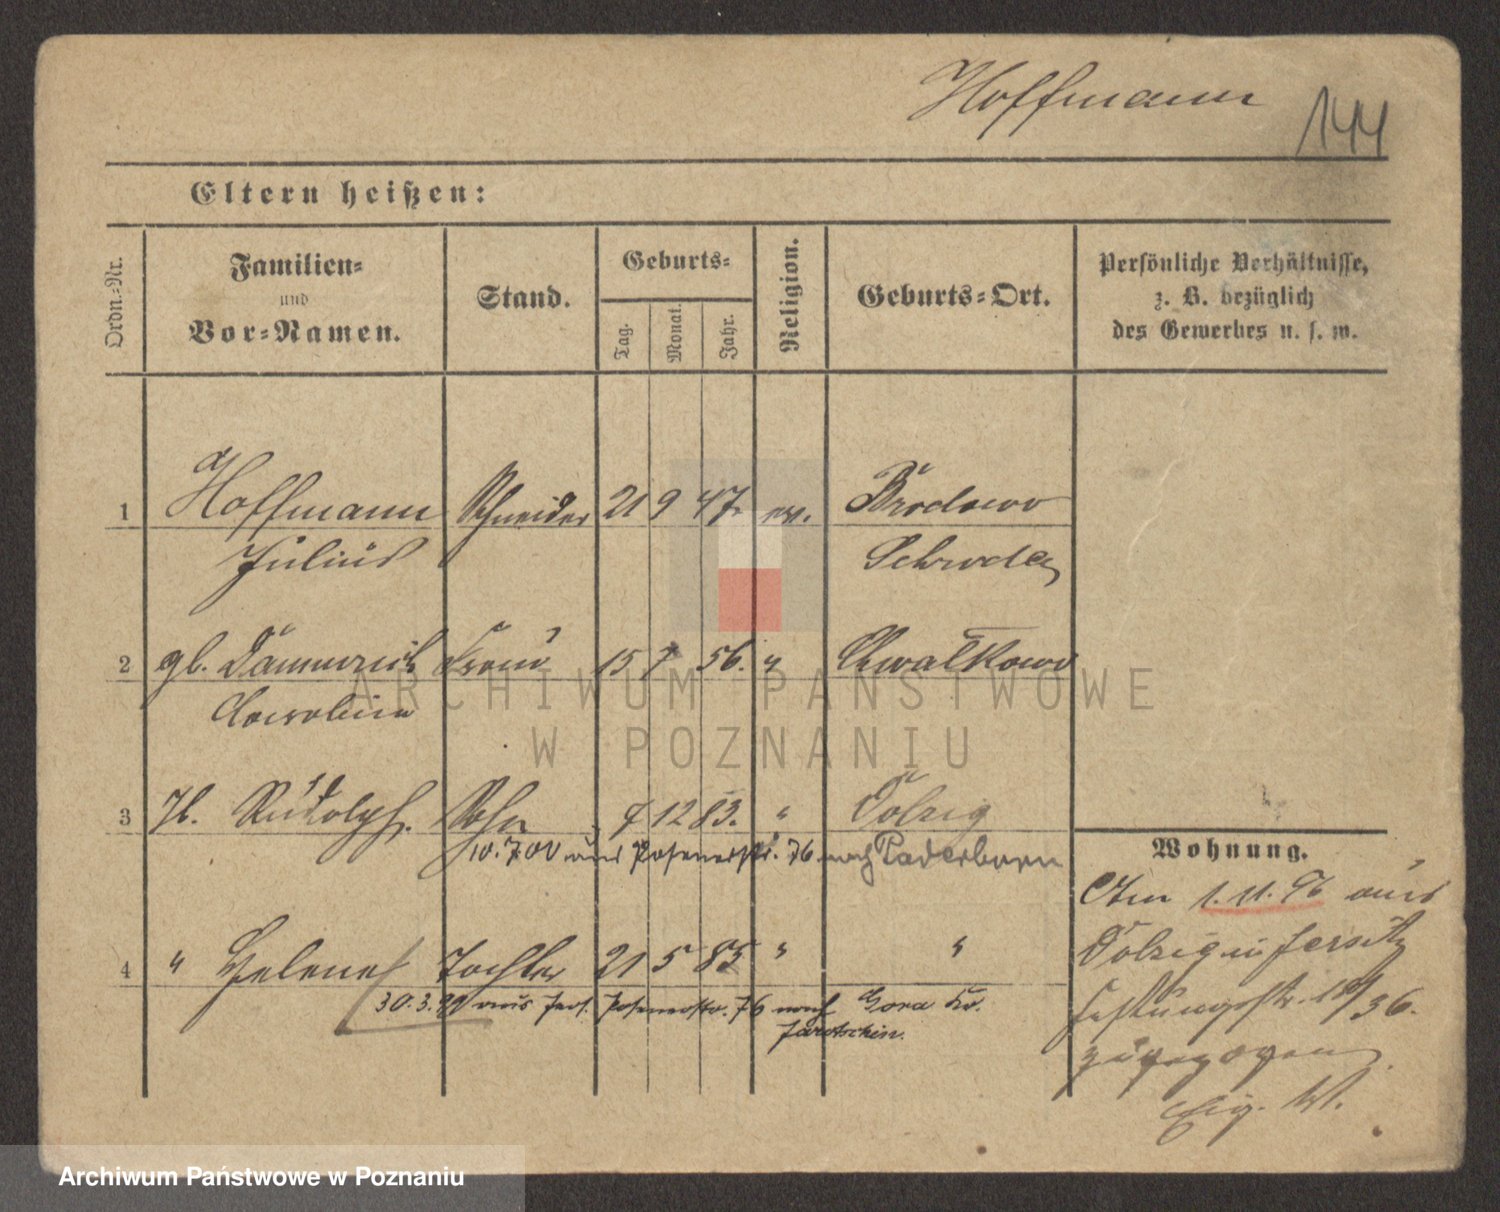 Hoffmann 144
Eltern heißen:
Ordn.-Nr.
Familien-
und
Vor-Namen.
Stand.
Geburts-
Tag.
Monat.
Jahr.
Religion.
Geburts-Ort.
Persönliche Verhältnisse,
z. B. bezüglich
des Gewerbes u. s. w.
1 Hoffmann Schneider 21 9 47. ev. Brodowo
Julius Schroda
2 gb. Dämmrich Frau 15 7 56. " Chwalkowo
Carolina
3 Rudolph. Sohn 7 12 83. " Dolzig
10.7.01 aus Posenerstr. 76. nach Paderborn
4 " Helene Tochter 21 5 85 " "
30.3.99 aus Jers. Posenerstr. 76 nach Gora Kr.
Jarotschin.
Wohnung.
Am 1.11.96 aus
Dolzig in Jersitz
Festungsstr.
zugezogen.
ARCHIWUM PAŃSTWOWE
W POZNANIU
Archiwum Państwowe w Poznaniu